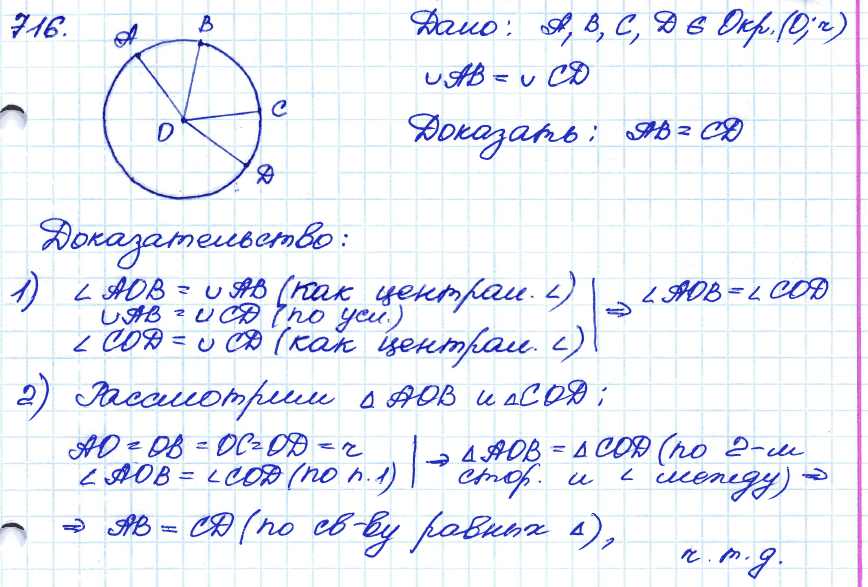 716.
A
B
C
D
O
Дано: A, B, C, D ∈ Окр.(O; r)
∪AB = ∪CD
Доказать: AB = CD
Доказательство:
1) ∠AOB = ∪AB (как централ. ∠) | ⇒ ∠AOB = ∠COD
∪AB = ∪CD (по усл.)
∠COD = ∪CD (как централ. ∠)
2) Рассмотрим △AOB и △COD:
AO = OB = OC = OD = r | ⇒ △AOB = △COD (по 2-м
∠AOB = ∠COD (по п.1) | стор. и ∠ между) ⇒
⇒ AB = CD (по св-ву равных △),
ч.т.д.